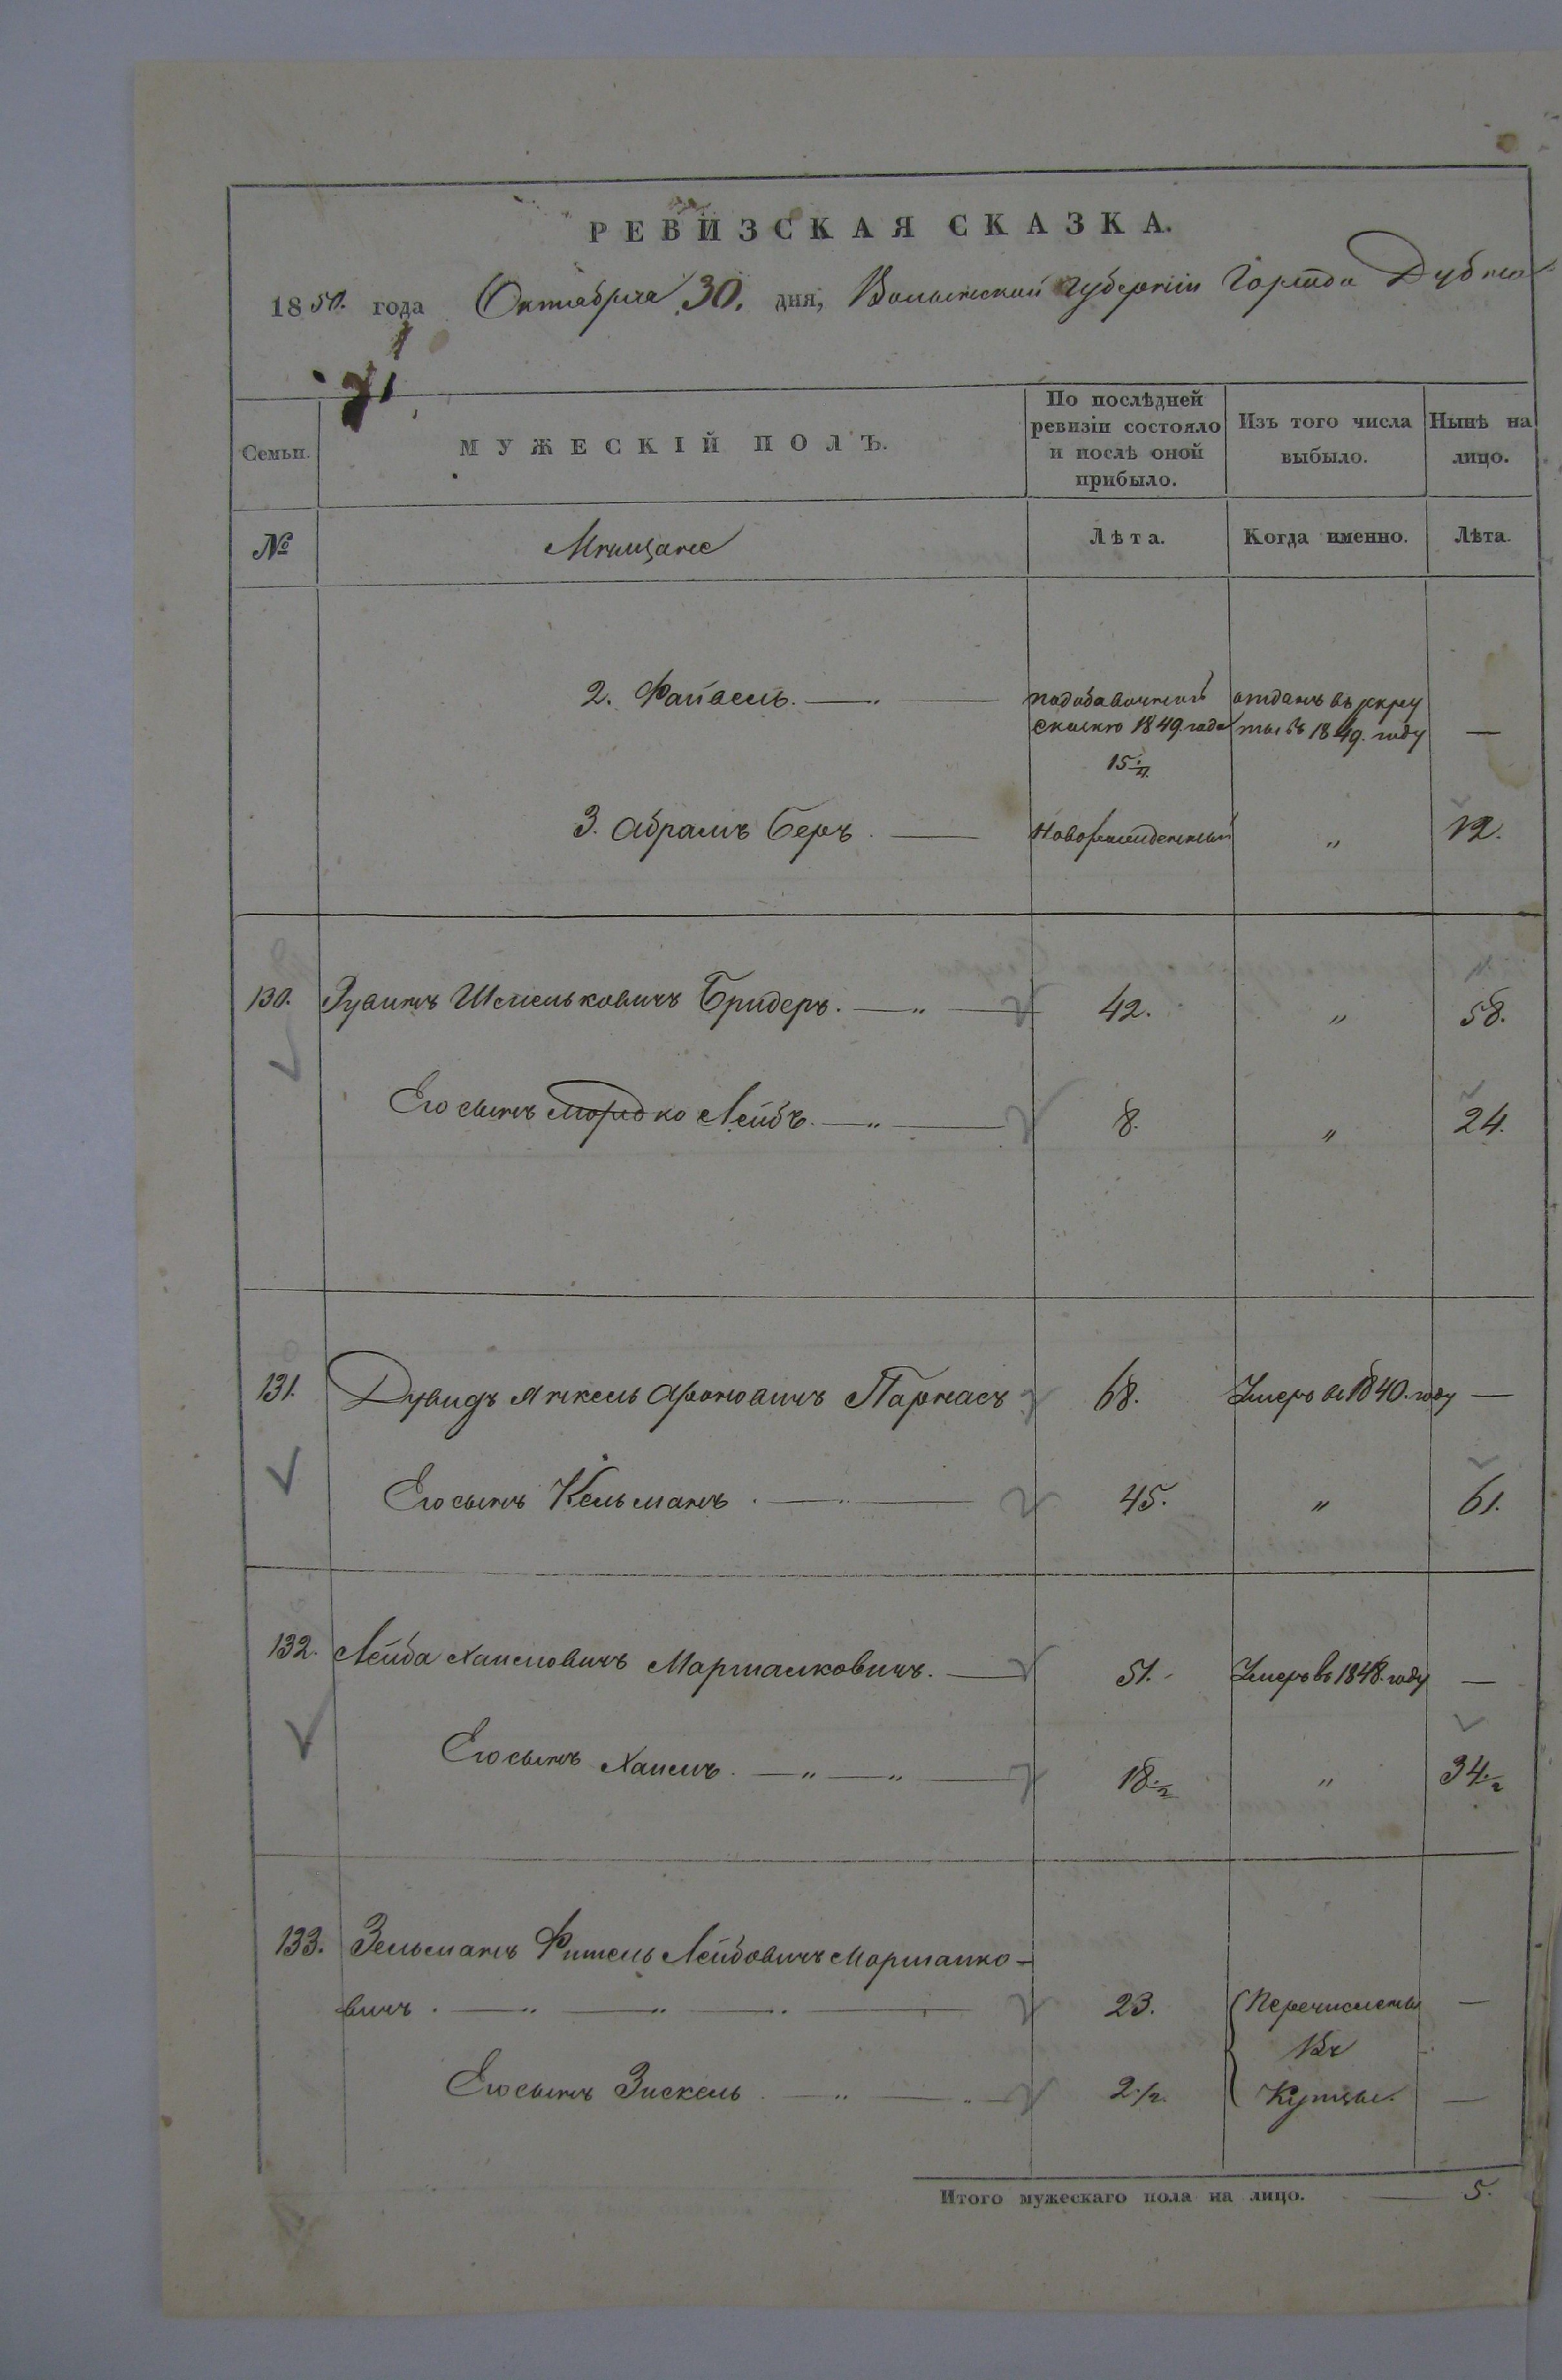 РЕВИЗСКАЯ СКАЗКА.
1850. года Октября 30. дня, Волынской Губернии Города Дубна
Семьи.
МУЖЕСКІЙ ПОЛЪ.
По послѣдней ревизіи состояло и послѣ оной прибыло.
Изъ того числа выбыло.
Нынѣ на лицо.
№ Мѣщане Лѣта. Когда именно. Лѣта.
2. Файвель. — подобавочной отданъ въ рекру
сказкѣ 1849. года ты въ 1849. году —
15 1/2
3. Абрамъ Беръ. — Новорожденный " 12.
130. Рувинъ Шмельковичъ Бридеръ. — " — 42. " 58.
Его сынъ Мордко Лейбъ. — " — 8. " 24.
131. Дувидъ Янкель Ароновичъ Парнасъ 68. Умеръ въ 1840. году —
Его сынъ Кельманъ. — " — 45. " 61.
132. Лейба Хаимовичъ Маршалковичъ. — 51. Умеръ въ 1848. году —
Его сынъ Хаимъ. — " — " — 18 1/2 " 34 1/2
133. Зельманъ Фишель Лейбовичъ Маршалко-
вичъ. — " — " — " — 23. Перечислены —
въ
Его сынъ Зискель. — " — " — 2 1/2. Купцы. —
Итого мужескаго пола на лицо. — 5.